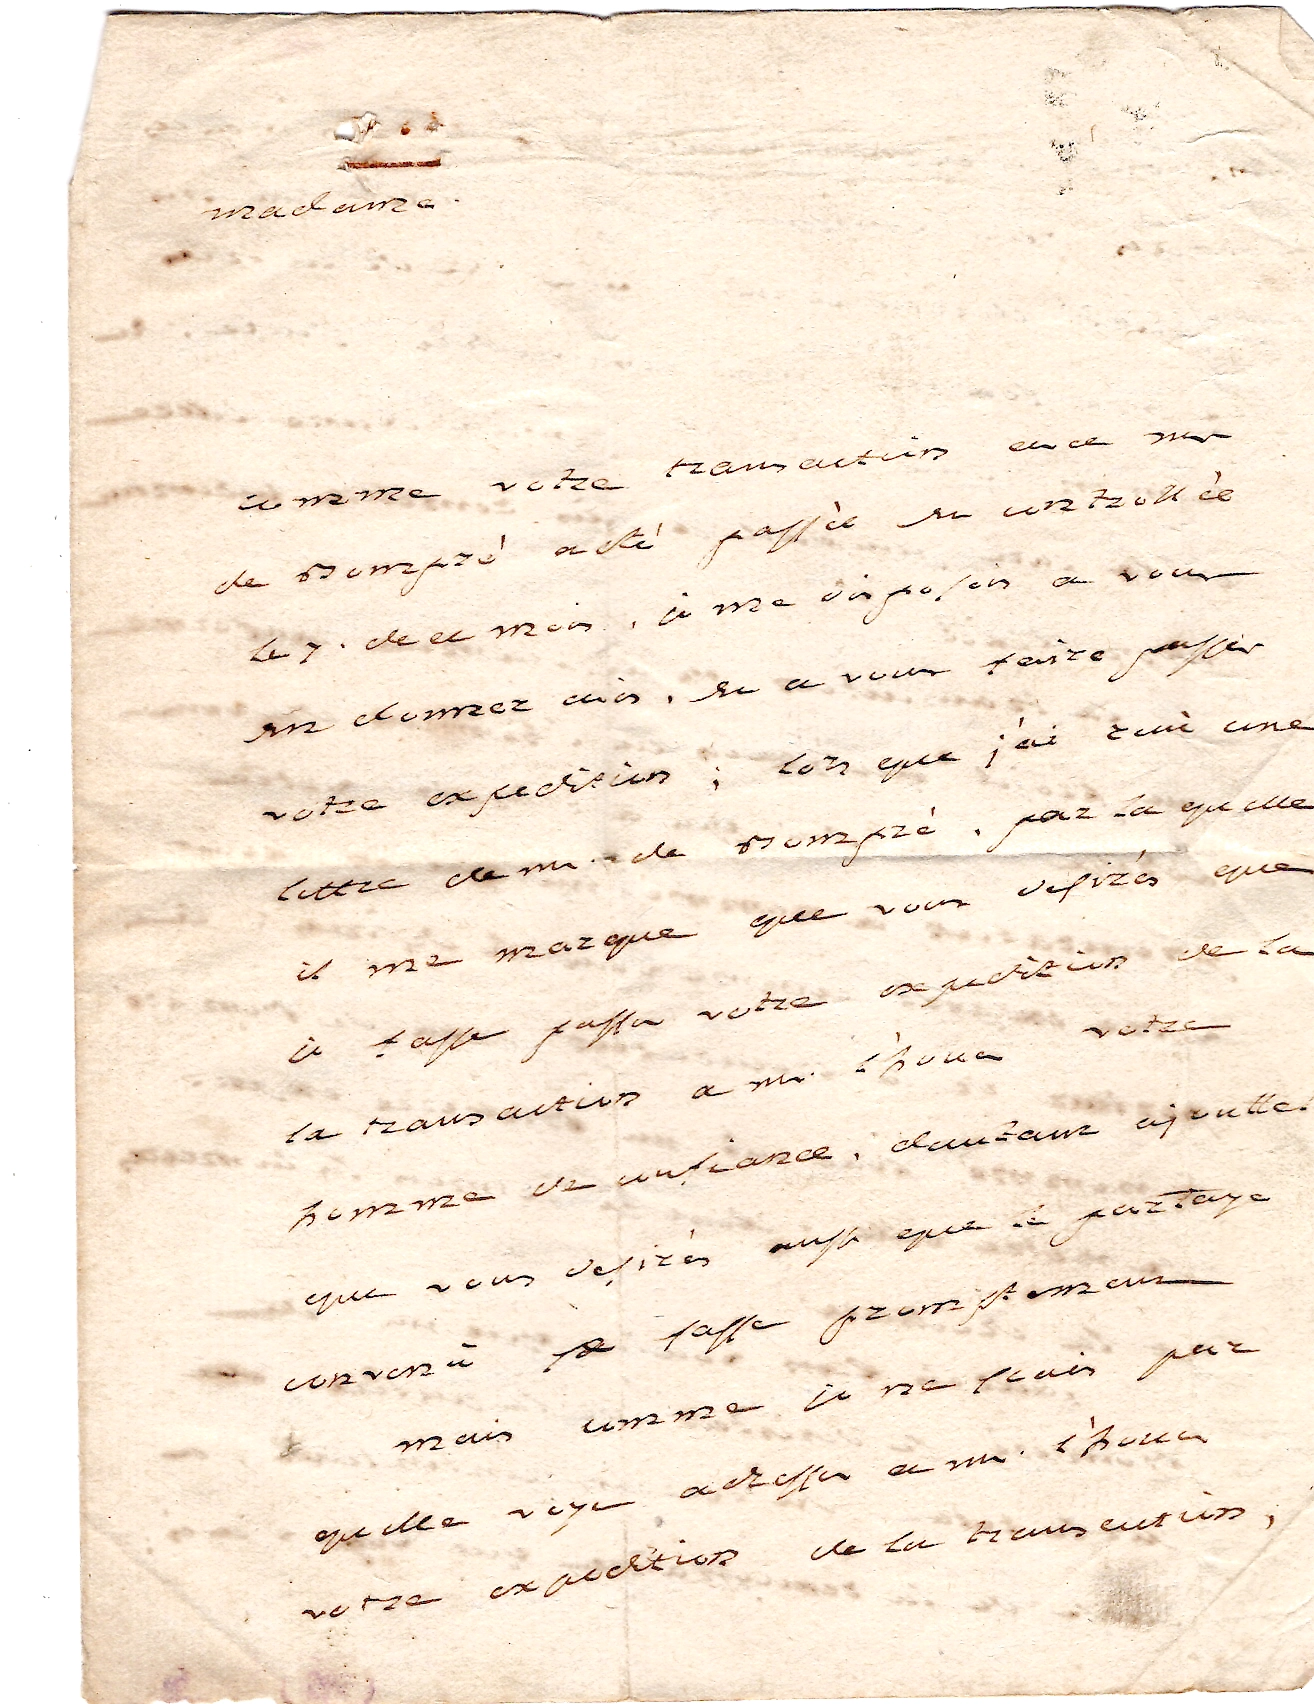 madame.
comme votre transaction avec mr
de Dompré a été passée et controllée
le 7. de ce mois, je me disposois a vous
en donner avis, et a vous faire passer
votre expedition; lors que j'ai recü une
lettre de mr. de Dompré, par la quelle
il me marque que vous desirés que
je fasse passer votre expedition de la
la transaction a mr. votre
homme de confiance, d'autant
que vous desirés aussi que le partage
convenü se fasse promptement
mais comme je ne scais par
quelle voye adresser a mr.
votre expedition de la transaction,